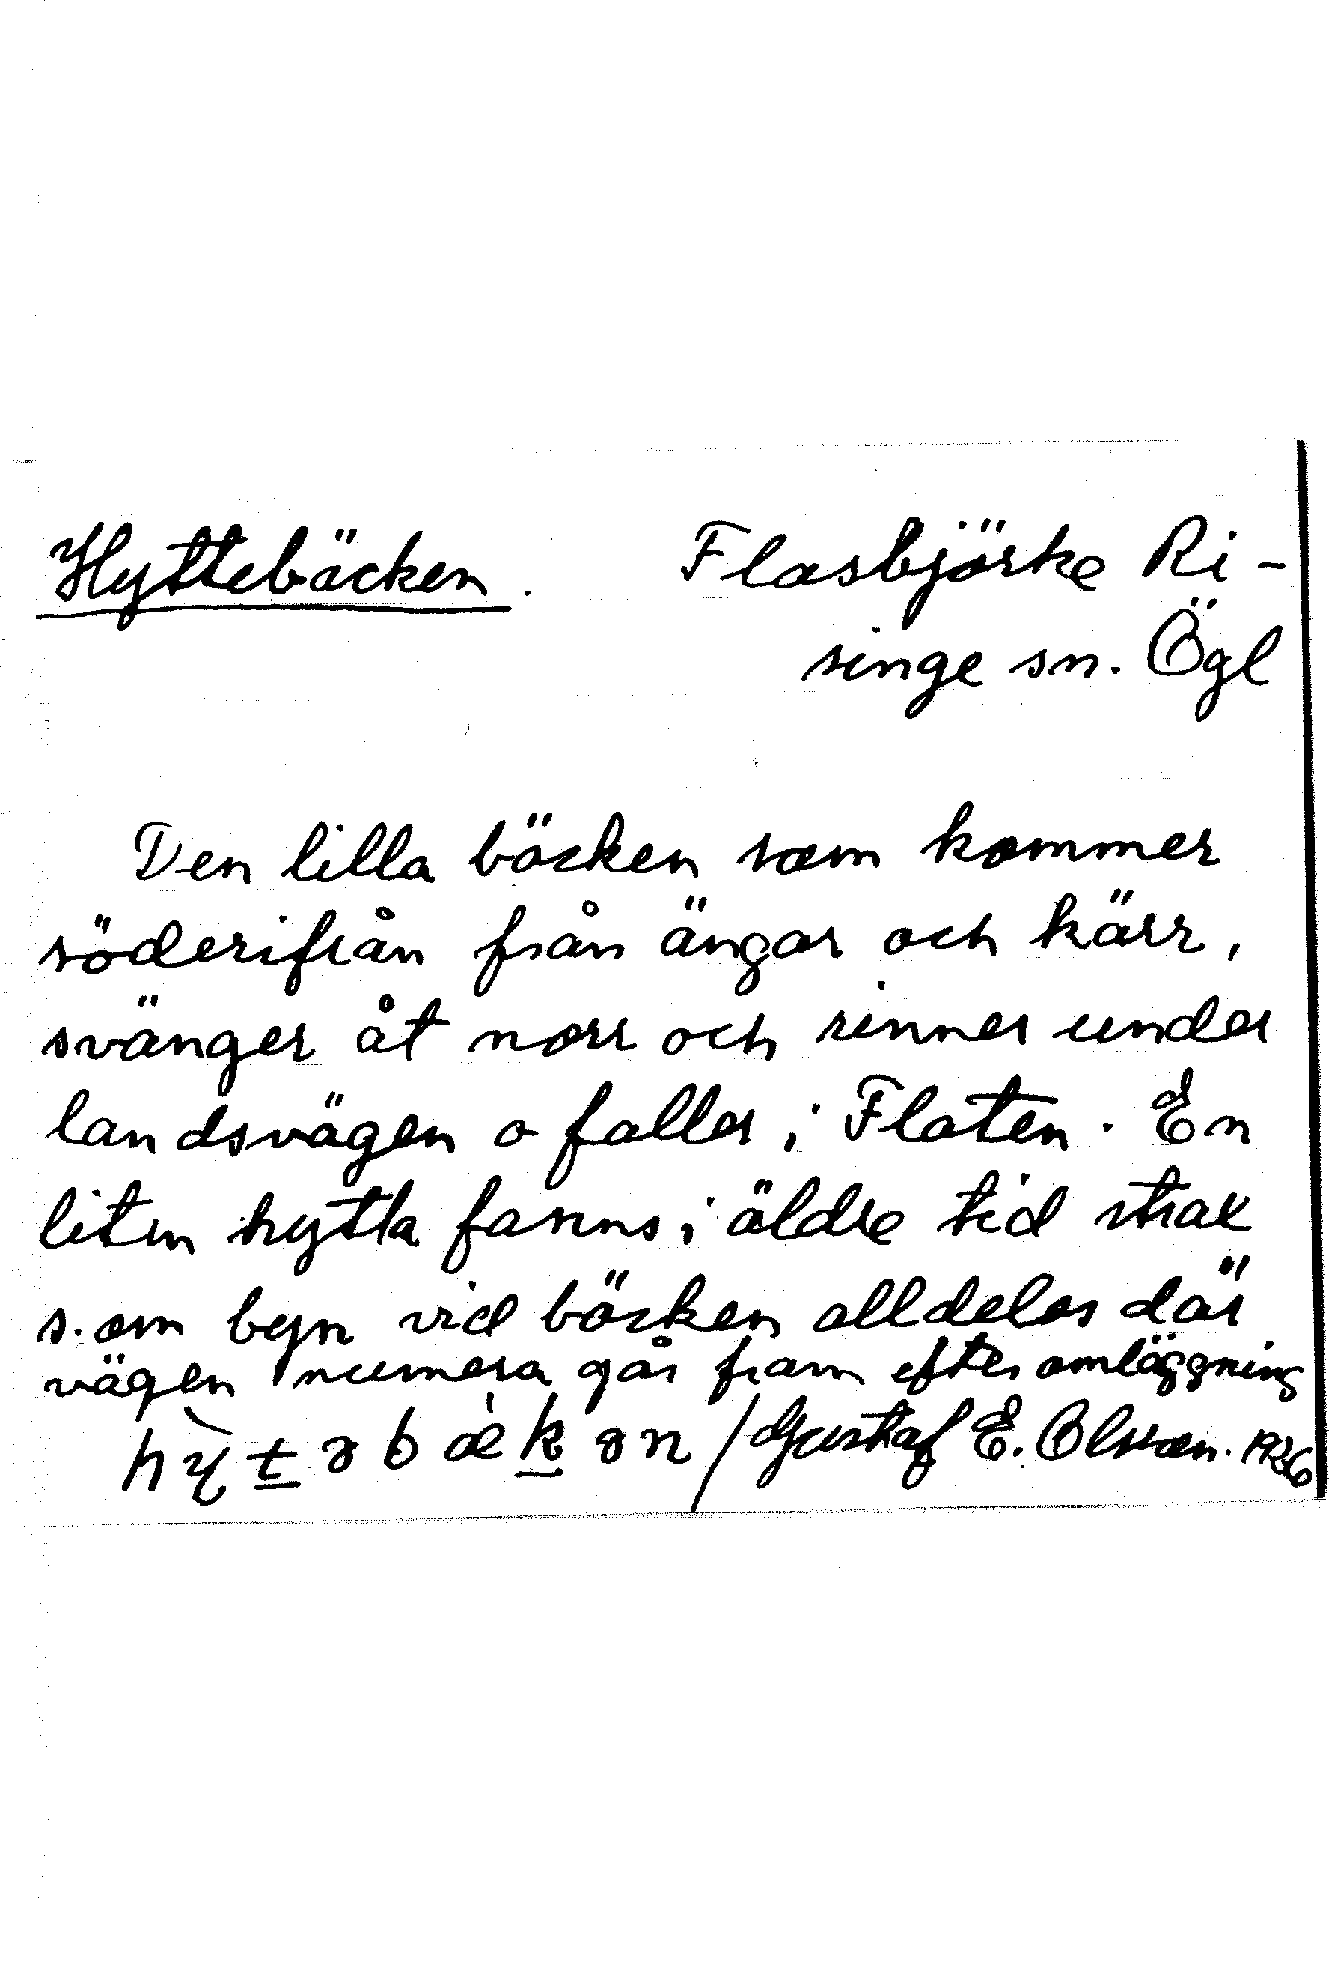 Hyttebäcken. Flasbjörke Ri-
singe sn. Ögl
Den lilla bäcken som kommer
söderifrån från ängar och kärr,
svänger åt norr och rinner under
landsvägen o faller i Flaten. En
liten hytta fanns i äldre tid strax
s. om byn vid bäcken alldeles där
vägen numera går fram efter omläggning
hỳt̲əbæ̀k̲ən / Gustaf E. Olsson. 1926